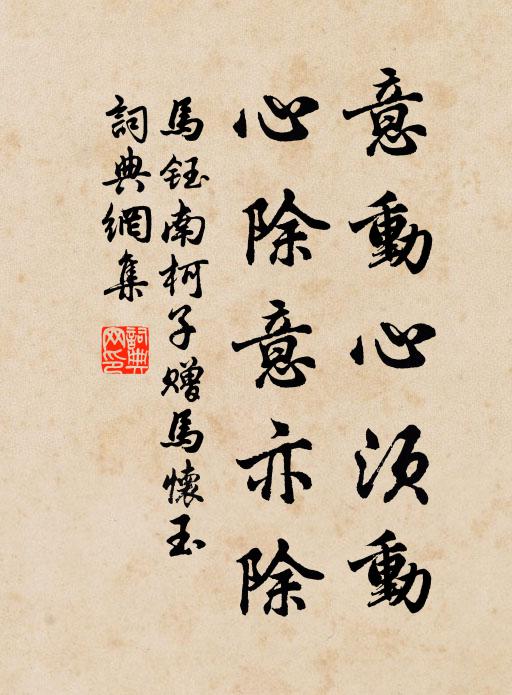 意動心須動
心除意亦除
馬鈺南柯子贈馬懷玉
詞典網集
詞典網印